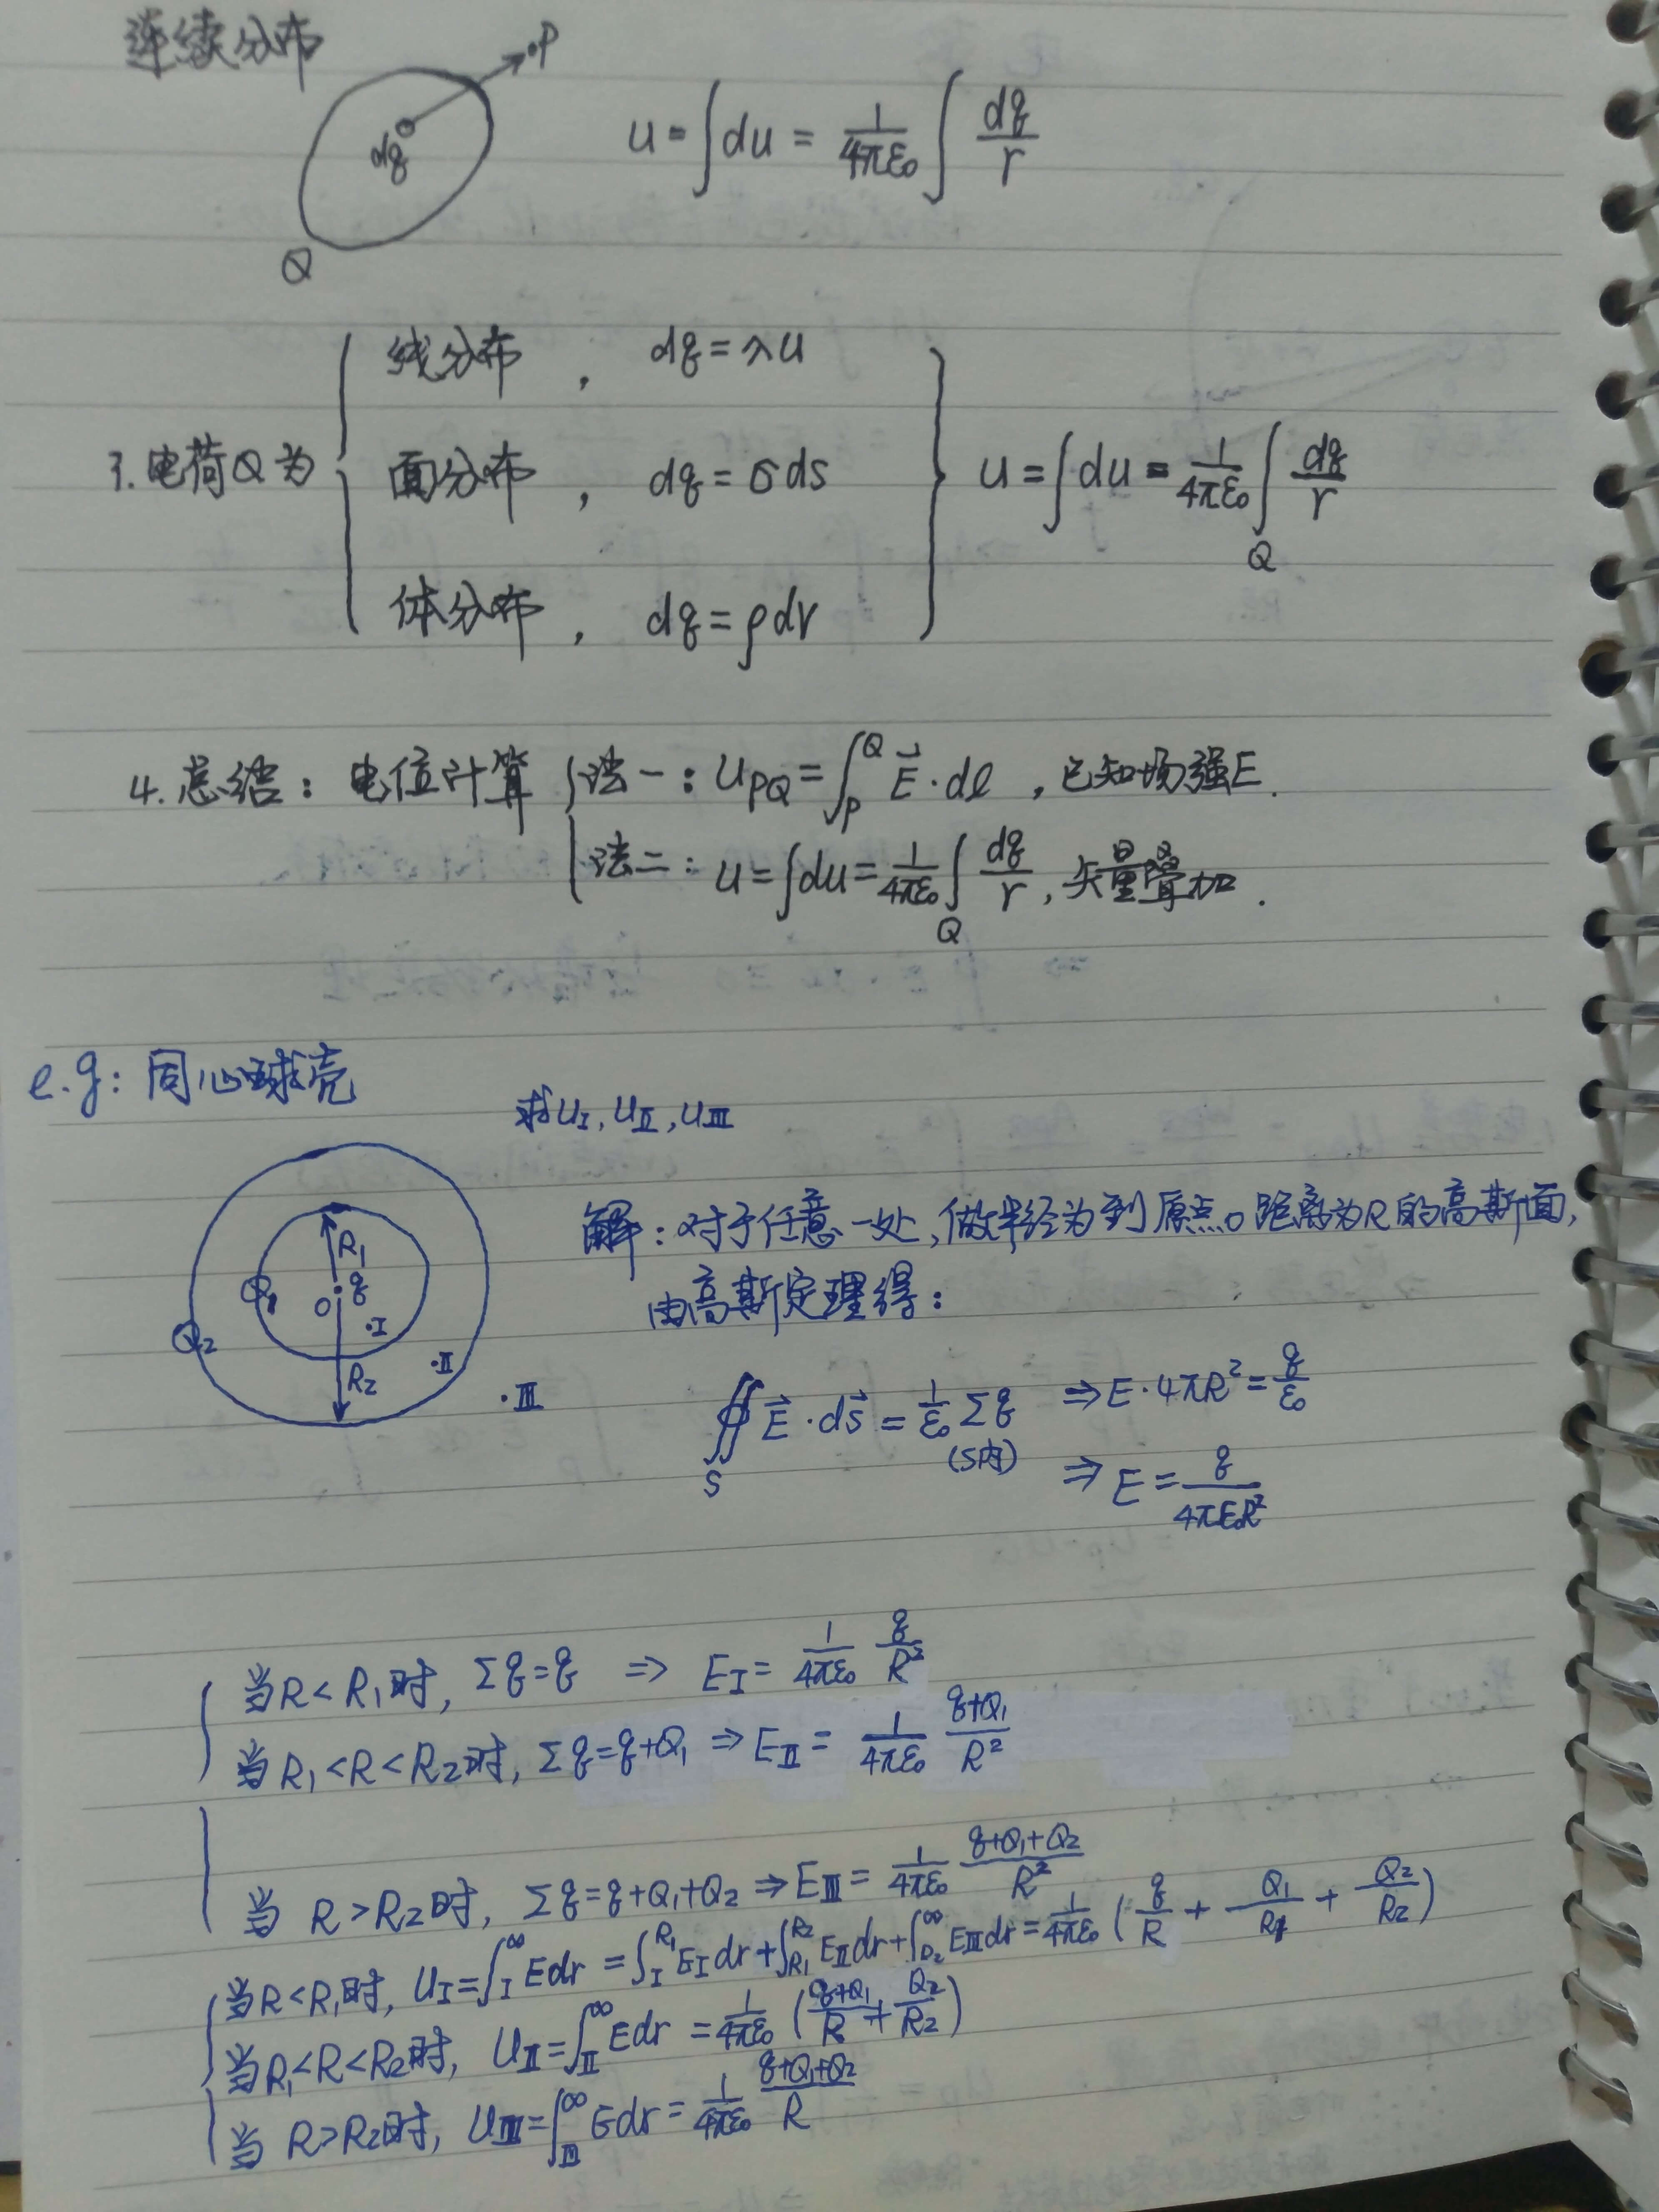 连续分布
·P
dq
Q
u = ∫du = 1/(4πε₀) ∫ dq/r
3. 电荷Q为
线分布 , dq = λu
面分布 , dq = σds
体分布 , dq = ρdv
u = ∫du = 1/(4πε₀) ∫_Q dq/r
4. 总结: 电位计算
法一: u_PQ = ∫_P^Q E⃗·dl , 已知场强E.
法二: u = ∫du = 1/(4πε₀) ∫_Q dq/r , 矢量叠加.
e.g: 同心球壳
求 u_I, u_II, u_III
R₁
Q₁
O
q
·I
Q₂
R₂
·II
·III
解: 对于任意一处, 做半径为到原点o距离为R的高斯面,
由高斯定理得:
∯_S E⃗·ds⃗ = 1/ε₀ Σq (S内) ⇒ E·4πR² = q/ε₀
⇒ E = q/(4πε₀R²)
当R < R₁时, Σq = q ⇒ E_I = 1/(4πε₀) q/R²
当R₁ < R < R₂时, Σq = q+Q₁ ⇒ E_II = 1/(4πε₀) (q+Q₁)/R²
当 R > R₂时, Σq = q+Q₁+Q₂ ⇒ E_III = 1/(4πε₀) (q+Q₁+Q₂)/R²
当R < R₁时, U_I = ∫_I^∞ Edr = ∫_I^R₁ E_I dr + ∫_R₁^R₂ E_II dr + ∫_R₂^∞ E_III dr = 1/(4πε₀) (q/R + Q₁/R₁ + Q₂/R₂)
当R₁<R<R₂时, U_II = ∫_II^∞ Edr = 1/(4πε₀) ((q+Q₁)/R + Q₂/R₂)
当 R>R₂时, U_III = ∫_III^∞ Edr = 1/(4πε₀) (q+Q₁+Q₂)/R